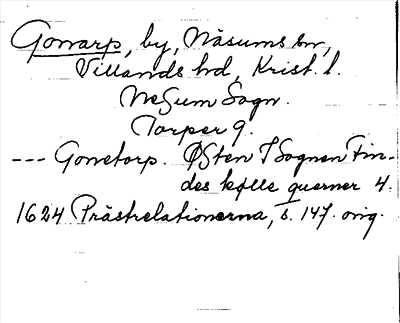 Gonarp, by, Näsums sn,
Villands hd, Krist. l.
NeSum Sogn.
Torper 9.
--- Gonetorp. ØSten I Sognen Fin-
des kølle querner 4.
1624 Prästrelationerna, s. 147. orig.